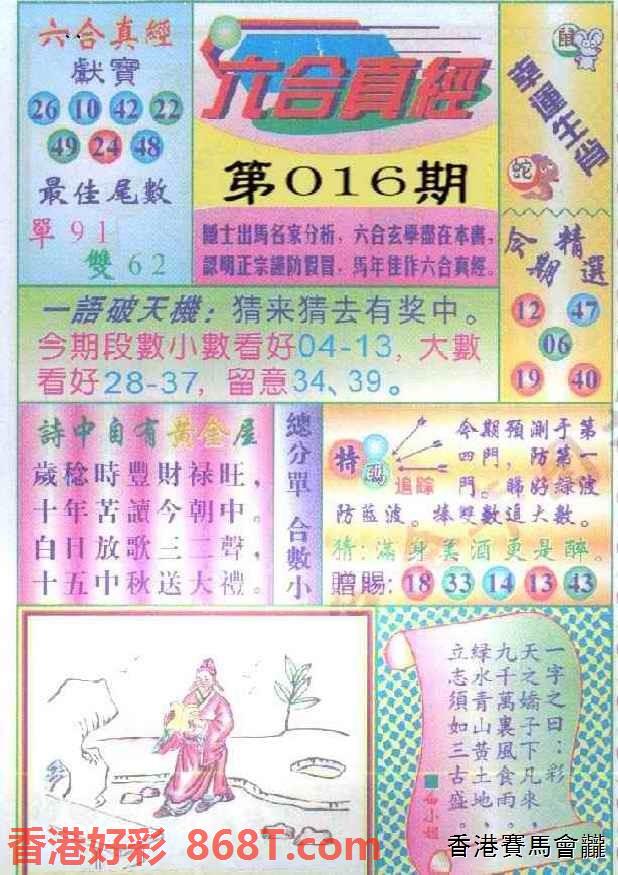 六合真經
獻寶
26 10 42 22
49 24 48
最佳尾數
單91
雙62
六合真經
第016期
隱士出馬名家分析，六合玄學盡在本書，
認明正宗謹防假冒，馬年佳作六合真經。
鼠
幸運生肖
蛇
今期精選
12 47
06
19 40
一語破天機：猜来猜去有奖中。
今期段數小數看好04-13，大數
看好28-37，留意34、39。
詩中自有黃金屋
歲稔時豐財禄旺，
十年苦讀今朝中。
白日放歌三二聲，
十五中秋送大禮。
總分單 合數小
特碼
追踪
今期預測于第
四門，防第一
門。睇好綠波
防藍波。捧雙數追大數。
猜：滿身美酒更是醉。
贈賜：18 33 14 13 43
一字之曰：彩
天之嬌子下凡来，
九千萬裏風食雨，
绿水青山黃土地。
立志須如三古盛。
香港好彩 868T.com
香港賽馬會